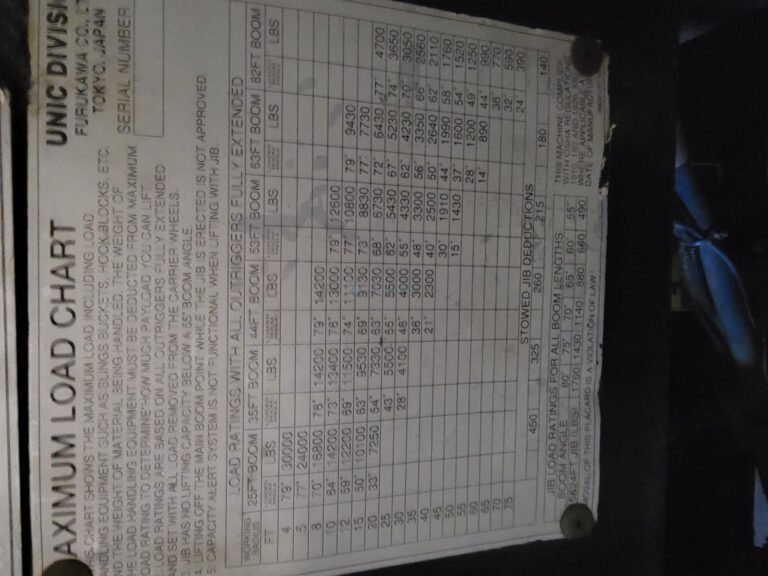 AXIMUM LOAD CHART
UNIC DIVISI
FURUKAWA CO., LT
TOKYO, JAPAN
SERIAL NUMBER
HIS CHART SHOWS THE MAXIMUM LOAD INCLUDING LOAD
ANDLING EQUIPMENT SUCH AS SLINGS BUCKETS, HOCK BLOCKS, ETC.
ND THE WEIGHT OF MATERIAL BEING HANDLED. THE WEIGHT OF
HE LOAD HANDLING EQUIPMENT MUST BE DEDUCTED FROM MAXIMUM
OAD RATING TO DETERMINE HOW MUCH PAYLOAD YOU CAN LIFT
LOAD RATINGS ARE BASED ON ALL OUTRIGGERS FULLY EXTENDED
AND SET WITH ALL LOAD REMOVED FROM THE CARRIER WHEELS.
3. JIB HAS NO LIFTING CAPACITY BELOW A 55° BOOM ANGLE.
4. LIFTING OFF THE MAIN BOOM POINT WHILE THE JIB IS ERECTED IS NOT APPROVED.
5. CAPACITY ALERT SYSTEM IS NOT FUNCTIONAL WHEN LIFTING WITH JIB.
LOAD RATINGS WITH ALL OUTRIGGERS FULLY EXTENDED
WORKING RADIUS 25FT BOOM 35FT BOOM 44FT BOOM 53FT BOOM 63FT BOOM 82FT BOOM
FT LBS LBS LBS LBS LBS LBS
4 79° 30000
5 77° 24000
8 70° 15800 76° 14200 79° 14200
10 64° 14200 73° 13400 78° 13000 79° 12600
12 59° 12200 69° 11500 74° 11100 77° 10800 79 9430
15 50° 10100 63° 9530 69° 9130 73° 8830 77° 7730
20 33° 7250 54° 7330 63° 7030 68° 6730 72° 6430 77° 4700
25 43° 5500 55° 5500 62° 5430 67° 5230 74° 3650
30 28° 4100 46° 4000 55° 4330 62° 4230 70° 3050
35 36° 3000 48° 3300 56° 3350 66° 2560
40 21° 2300 40° 2500 50° 2640 62° 2110
45 30° 1910 44° 1990 58 1760
50 15° 1430 37° 1600 54 1520
55 28° 1200 49 1250
60 14° 890 44° 990
65 38° 770
70 32 590
75 24 390
STOWED JIB DEDUCTIONS
450 325 260 215 180 140
JIB LOAD RATINGS FOR ALL BOOM LENGTHS
BOOM ANGLE 80° 75° 70° 65° 60° 55°
24FT JIB LBS. 1760 1430 1140 880 660 490
OVAL OF THIS PLACARD IS A VIOLATION OF LAW
THIS MACHINE COMPLIES
WITH OSHA REGULATIONS
WHERE APPLICABLE A
DATE OF MANUFACTU